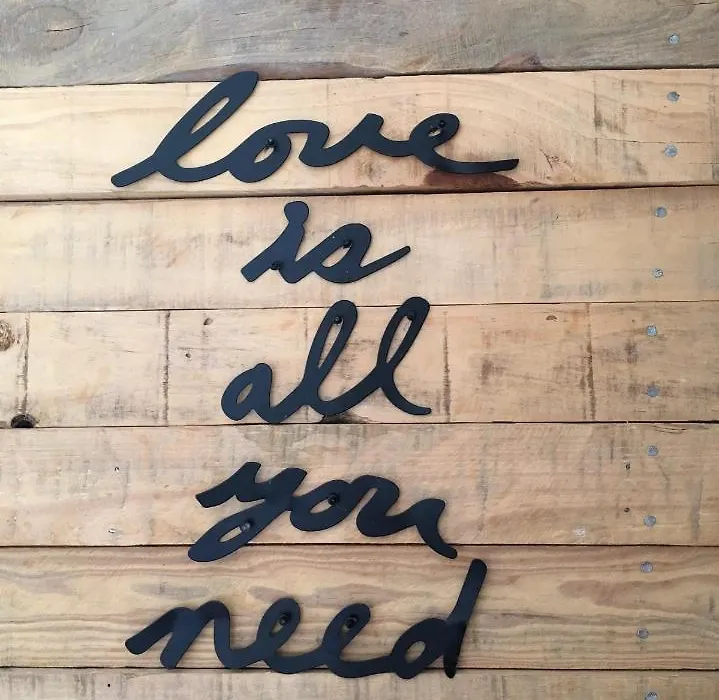 love
is
all
you
need